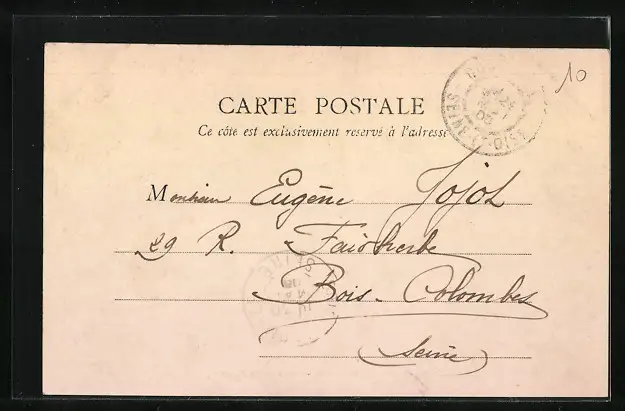 10
CARTE POSTALE
Ce côté est exclusivement reservé à l'adresse
Monsieur Eugène Jojot
29 R. Faidherbe
Bois-Colombes
(Seine)